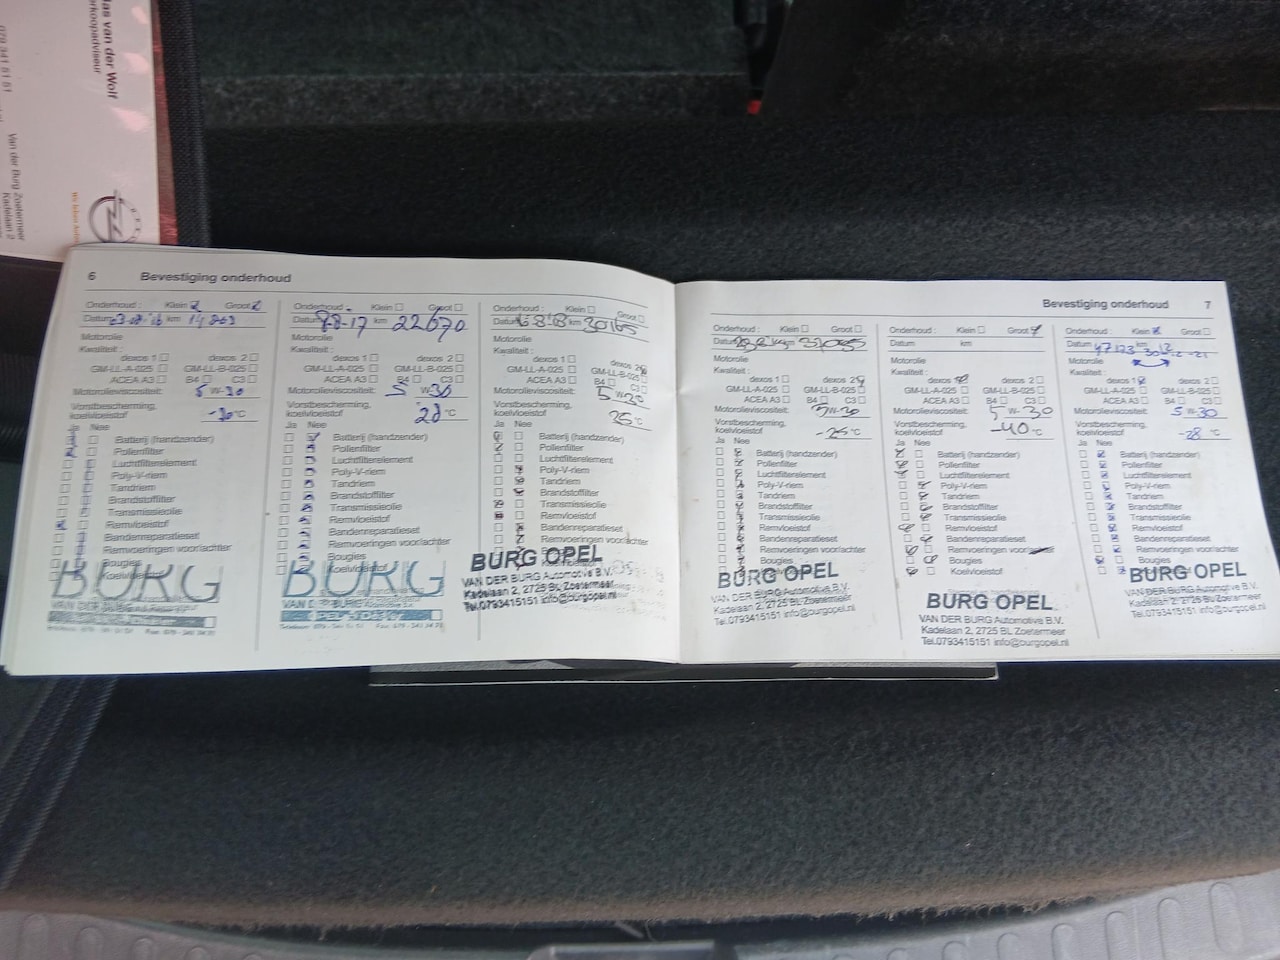 las van der Wolf
rkoopadviseur
079 341 51 51
Van der Burg Zoetermeer
Kadelaan 2
6 Bevestiging onderhoud
Onderhoud : Klein Groot
Datum km
Motorolie
Kwaliteit :
dexos 1 dexos 2
GM-LL-A-025 GM-LL-B-025
ACEA A3 B4 C3
Motorolieviscositeit: 5 W-30
Vorstbescherming,
koelvloeistof °C
Ja Nee
Batterij (handzender)
Pollenfilter
Luchtfilterelement
Poly-V-riem
Tandriem
Brandstoffilter
Transmissieolie
Remvloeistof
Bandenreparatieset
Remvoeringen voor/achter
Bougies
Koelvloeistof
BURG
Onderhoud : Klein Groot
Datum 8-8-17 km 22670
Motorolie
Kwaliteit :
dexos 1 dexos 2
GM-LL-A-025 GM-LL-B-025
ACEA A3 B4 C3
Motorolieviscositeit: 5 W-30
Vorstbescherming,
koelvloeistof 28 °C
Ja Nee
Batterij (handzender)
Pollenfilter
Luchtfilterelement
Poly-V-riem
Tandriem
Brandstoffilter
Transmissieolie
Remvloeistof
Bandenreparatieset
Remvoeringen voor/achter
Bougies
Koelvloeistof
BURG
Onderhoud : Klein Groot
Datum km 30165
Motorolie
Kwaliteit :
dexos 1 dexos 2
GM-LL-A-025 GM-LL-B-025
ACEA A3 B4 C3
5 W-30
Vorstbescherming,
koelvloeistof 25 °C
Ja Nee
Batterij (handzender)
Pollenfilter
Luchtfilterelement
Poly-V-riem
Tandriem
Brandstoffilter
Transmissieolie
Remvloeistof
Bandenreparatieset
Remvoeringen voor/achter
BURG OPEL
VAN DER BURG Automotive B.V.
Kadelaan 2, 2725 BL Zoetermeer
Tel.0793415151 info@burgopel.nl
Bevestiging onderhoud 7
Onderhoud : Klein Groot
Datum km
Motorolie
Kwaliteit :
dexos 1 dexos 2
GM-LL-A-025 GM-LL-B-025
ACEA A3 B4 C3
Motorolieviscositeit: 5W-30
Vorstbescherming,
koelvloeistof -25 °C
Ja Nee
Batterij (handzender)
Pollenfilter
Luchtfilterelement
Poly-V-riem
Tandriem
Brandstoffilter
Transmissieolie
Remvloeistof
Bandenreparatieset
Remvoeringen voor/achter
Bougies
BURG OPEL
VAN DER BURG Automotive B.V.
Kadelaan 2, 2725 BL Zoetermeer
Tel.0793415151 info@burgopel.nl
Onderhoud : Klein Groot
Datum km
Motorolie
Kwaliteit :
dexos dexos 2
GM-LL-A-025 GM-LL-B-025
ACEA A3 B4 C3
Motorolieviscositeit: 5 W-30
Vorstbescherming,
koelvloeistof -40 °C
Ja Nee
Batterij (handzender)
Pollenfilter
Luchtfilterelement
Poly-V-riem
Tandriem
Brandstoffilter
Transmissieolie
Remvloeistof
Bandenreparatieset
Remvoeringen
Bougies
Koelvloeistof
BURG OPEL
VAN DER BURG Automotive B.V.
Kadelaan 2, 2725 BL Zoetermeer
Tel.0793415151 info@burgopel.nl
Onderhoud : Klein Groot
Datum 47123 km
Motorolie
Kwaliteit :
dexos 1 dexos 2
GM-LL-A-025 GM-LL-B-025
ACEA A3 B4 C3
Motorolieviscositeit: 5 W-30
Vorstbescherming,
koelvloeistof -28 °C
Ja Nee
Batterij (handzender)
Pollenfilter
Luchtfilterelement
Poly-V-riem
Tandriem
Brandstoffilter
Transmissieolie
Remvloeistof
Bandenreparatieset
Remvoeringen voor/achter
Bougies
BURG OPEL
VAN DER BURG Automotive B.V.
Kadelaan 2, 2725 BL Zoetermeer
Tel.0793415151 info@burgopel.nl